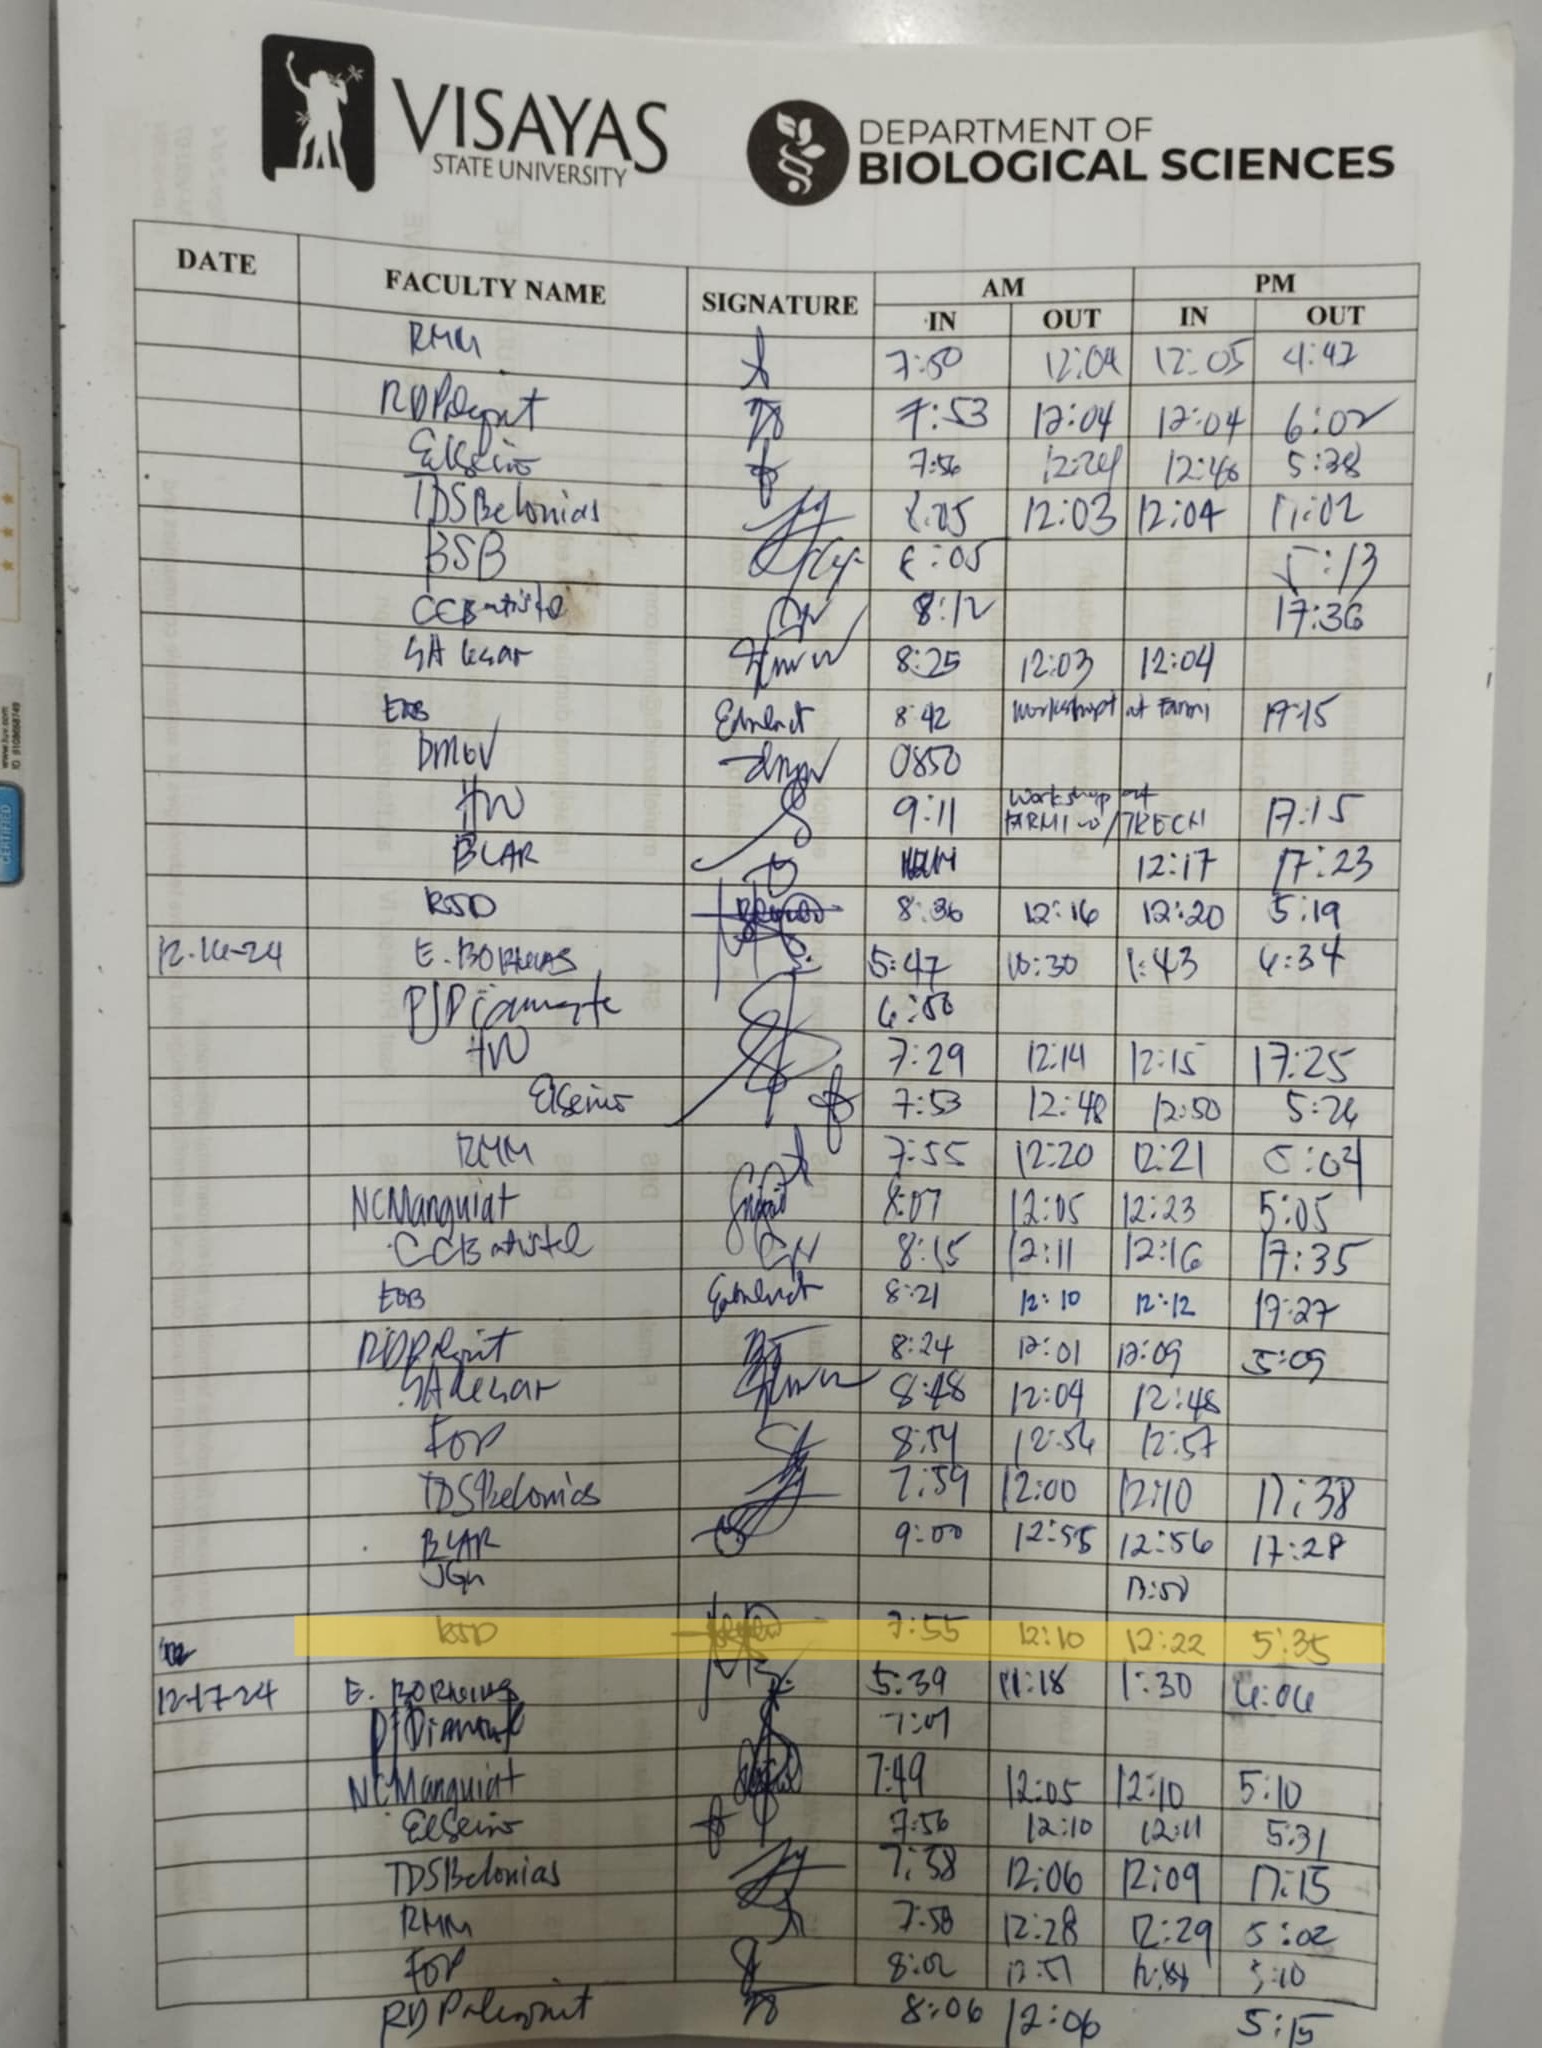 VISAYAS
STATE UNIVERSITY
DEPARTMENT OF
BIOLOGICAL SCIENCES
DATE FACULTY NAME SIGNATURE AM PM
IN OUT IN OUT
RMM 7:50 12:04 12:05 4:42
7:53 12:04 12:04 6:02
7:56 12:24 12:46 5:38
TDSBelonias 8:05 12:03 12:04 17:02
BSB 8:05 5:13
CCBatistel 8:12 17:36
8:25 12:03 12:04
EDB 8:42 Workshop at FARMI 17:15
DMGV 0850
HW 9:11 Workshop at FARMI TRECH 17:15
BLAR 12:17 17:23
RSD 8:36 12:16 12:20 5:19
12-16-24 E. BORINES 5:47 10:30 1:43 6:34
PJDiamante 6:50
HW 7:29 12:14 12:15 17:25
7:53 12:48 12:50 5:26
RMM 7:55 12:20 12:21 5:04
NCManguiat 8:07 12:05 12:23 5:05
CCBatistel 8:15 12:11 12:16 17:35
EDB 8:21 12:10 12:12 17:27
8:24 12:01 12:09 5:09
8:48 12:04 12:48
FOP 8:54 12:56 12:57
TDSBelonias 7:59 12:00 12:10 17:38
BLAR 9:00 12:55 12:56 17:28
13:50
RSD 7:55 12:10 12:22 5:35
12-17-24 E. BORINES 5:39 11:18 1:30 6:06
PJDiamante 7:01
NCManguiat 7:49 12:05 12:10 5:10
7:56 12:10 12:11 5:31
TDSBelonias 7:58 12:06 12:09 17:15
RMM 7:58 12:28 12:29 5:02
FOP 8:02 12:57 5:10
8:06 12:06 5:15
CERTIFIED